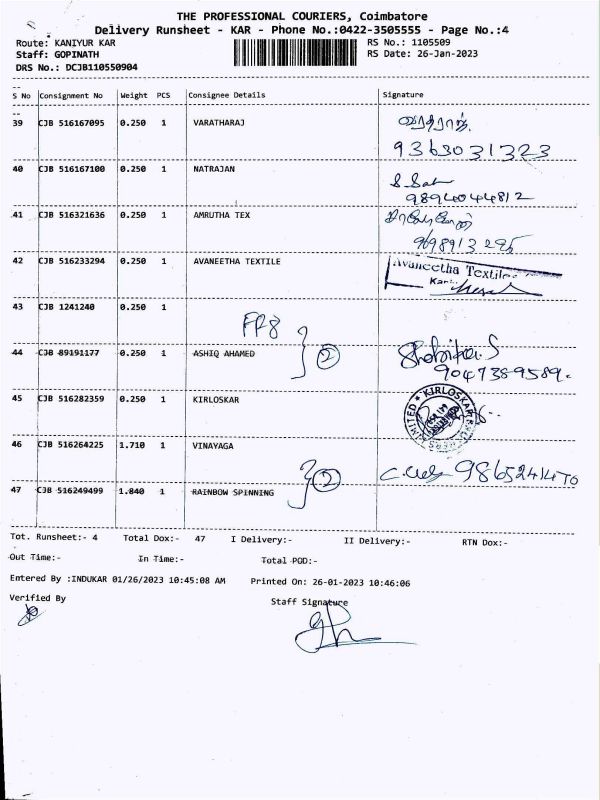 THE PROFESSIONAL COURIERS, Coimbatore
Delivery Runsheet - KAR - Phone No.:0422-3505555 - Page No.:4
Route: KANIYUR KAR RS No.: 1105509
Staff: GOPINATH RS Date: 26-Jan-2023
DRS No.: DCJB110550904
S No Consignment No Weight PCS Consignee Details Signature
39 CJB 516167095 0.250 1 VARATHARAJ வரதராஜ்
9363031323
40 CJB 516167100 0.250 1 NATRAJAN
9894044812
41 CJB 516321636 0.250 1 AMRUTHA TEX
9698913295
42 CJB 516233294 0.250 1 AVANEETHA TEXTILE Avaneetha Textiles
43 CJB 1241240 0.250 1
FF8
44 CJB 89191177 0.250 1 ASHIQ AHAMED 2
9047389589.
45 CJB 516282359 0.250 1 KIRLOSKAR KIRLOSKAR LIMITED
46 CJB 516264225 1.710 1 VINAYAGA
47 CJB 516249499 1.840 1 RAINBOW SPINNING 2
Tot. Runsheet:- 4 Total Dox:- 47 I Delivery:- II Delivery:- RTN Dox:-
Out Time:- In Time:- Total POD:-
Entered By :INDUKAR 01/26/2023 10:45:08 AM Printed On: 26-01-2023 10:46:06
Verified By Staff Signature